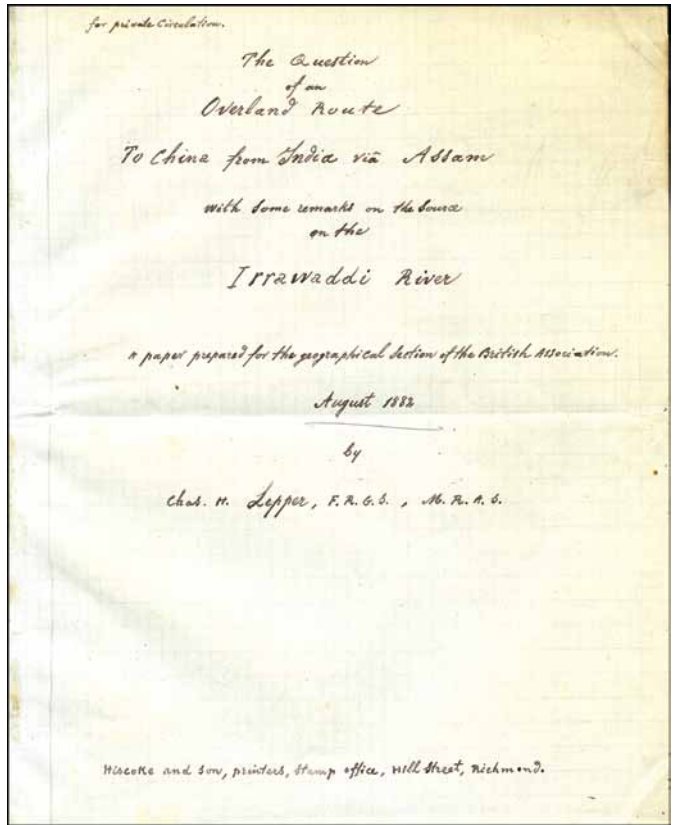 for private Circulation.
The Question
of an
Overland Route
To China from India viâ Assam
with some remarks on the Source
on the
Irrawaddi River
A paper prepared for the geographical Section of the British Association.
August 1882
by
Chas. H. Lepper, F.R.G.S., M.R.A.S.
Hiscoke and Son, printers, Stamp office, Hill Street, Richmond.